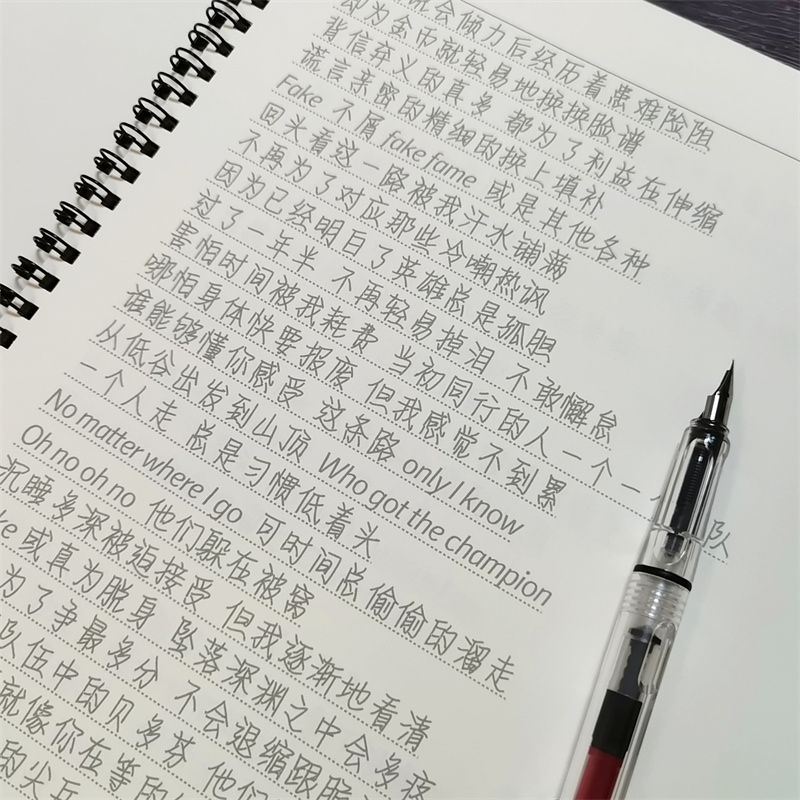 会倾力后经历着患难险阻
即为金币就轻易地换换脸谱
背信弃义的真多 都为了利益在伸缩
谎言亲密的精细的换上填补
Fake 不屑 fake fame 或是其他各种
回头看这一路被我汗水铺满
不再为了对应那些冷嘲热讽
因为已经明白了英雄总是孤胆
过了一年半 不再轻易掉泪 不敢懈怠
害怕时间被我耗费 当初同行的人一个一 队
哪怕身体快要报废 但我感觉不到累
谁能够懂你感受 这条路 only I know
从低谷出发到山顶 Who got the champion
一个人走 总是习惯低着头
No matter where I go 可时间总偷偷的溜走
Oh no oh no 他们躲在被窝
沉睡多深被迫接受 但我逐渐地看清
ke 或真为脱身 坠落深渊之中会多疼
为了争最多分 不会退缩跟
队伍中的贝多芬 他们
就像你在等的
的尖兵